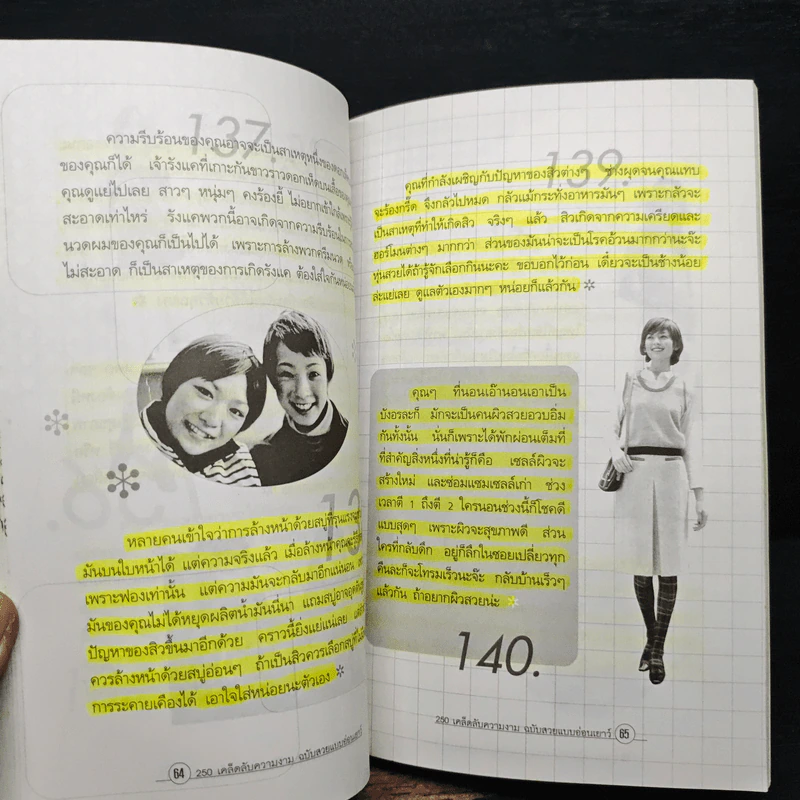 137.
ความรีบร้อนของคุณอาจจะเป็นสาเหตุหนึ่งของ
ของคุณก็ได้ เจ้ารังแคที่เกาะกันขาวราวดอกเห็ดบนเสื้อ
คุณดูแย่ไปเลย สาวๆ หนุ่มๆ คงร้องยี้ ไม่อยากเข้าใกล้
สะอาดเท่าไหร่ รังแคพวกนี้อาจเกิดจากความรีบร้อนใน
นวดผมของคุณก็เป็นไปได้ เพราะการล้างพวกครีมนวด
ไม่สะอาด ก็เป็นสาเหตุของการเกิดรังแค ต้องใส่ใจกัน
หลายคนเข้าใจว่าการล้างหน้าด้วยสบู่ที่รุนแรง
มันบนใบหน้าได้ แต่ความจริงแล้ว เมื่อล้างหน้าคุณจะรู้สึก
เพราะฟองเท่านั้น แต่ความมันจะกลับมาอีกแน่นอน
มันของคุณไม่ได้หยุดผลิตน้ำมันนี่นา แถมสบู่อาจอุดตัน
ปัญหาของสิวขึ้นมาอีกด้วย คราวนี้ยิ่งแย่แน่เลย
ควรล้างหน้าด้วยสบู่อ่อนๆ ถ้าเป็นสิวควรเลือกสบู่
การระคายเคืองได้ เอาใจใส่หน่อยนะตัวเอง
64 250 เคล็ดลับความงาม ฉบับสวยแบบอ่อนเยาว์
139.
คุณที่กำลังเผชิญกับปัญหาของสิวต่างๆ ช่างผุดจนคุณแทบ
จะร้องกรี๊ด จึงกลัวไปหมด กลัวแม้กระทั่งอาหารมันๆ เพราะกลัวจะ
เป็นสาเหตุที่ทำให้เกิดสิว จริงๆ แล้ว สิวเกิดจากความเครียดและ
ฮอร์โมนต่างๆ มากกว่า ส่วนของมันน่าจะเป็นโรคอ้วนมากกว่านะจ๊ะ
หุ่นสวยได้ถ้ารู้จักเลือกกินนะคะ ขอบอกไว้ก่อน เดี๋ยวจะเป็นช้างน้อย
ละแย่เลย ดูแลตัวเองมากๆ หน่อยก็แล้วกัน
คุณๆ ที่นอนเอ๊านอนเอาเป็น
บังอรละก็ มักจะเป็นคนผิวสวยอวบอิ่ม
กันทั้งนั้น นั่นก็เพราะได้พักผ่อนเต็มที่
ที่สำคัญสิ่งหนึ่งที่น่ารู้ก็คือ เซลล์ผิวจะ
สร้างใหม่ และซ่อมแซมเซลล์เก่า ช่วง
เวลาตี 1 ถึงตี 2 ใครนอนช่วงนี้ก็โชคดี
แบบสุดๆ เพราะผิวจะสุขภาพดี ส่วน
ใครที่กลับดึก อยู่ก็ลึกในซอยเปลี่ยวทุก
คืนละก็จะโทรมเร็วนะจ๊ะ กลับบ้านเร็วๆ
แล้วกัน ถ้าอยากผิวสวยน่ะ
140.
250 เคล็ดลับความงาม ฉบับสวยแบบอ่อนเยาว์ 65